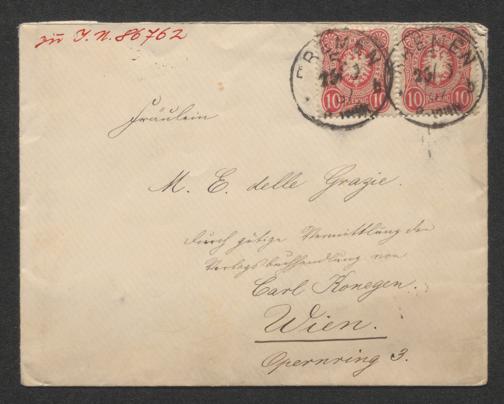 zu I. N. 86762
BREMEN
BREMEN
10 10
10 10
Fräulein
M. E. delle Grazie.
durch gütige Vermittlung der
Verlagsbuchhandlung von
Carl Konegen.
Wien.
Opernring 3.